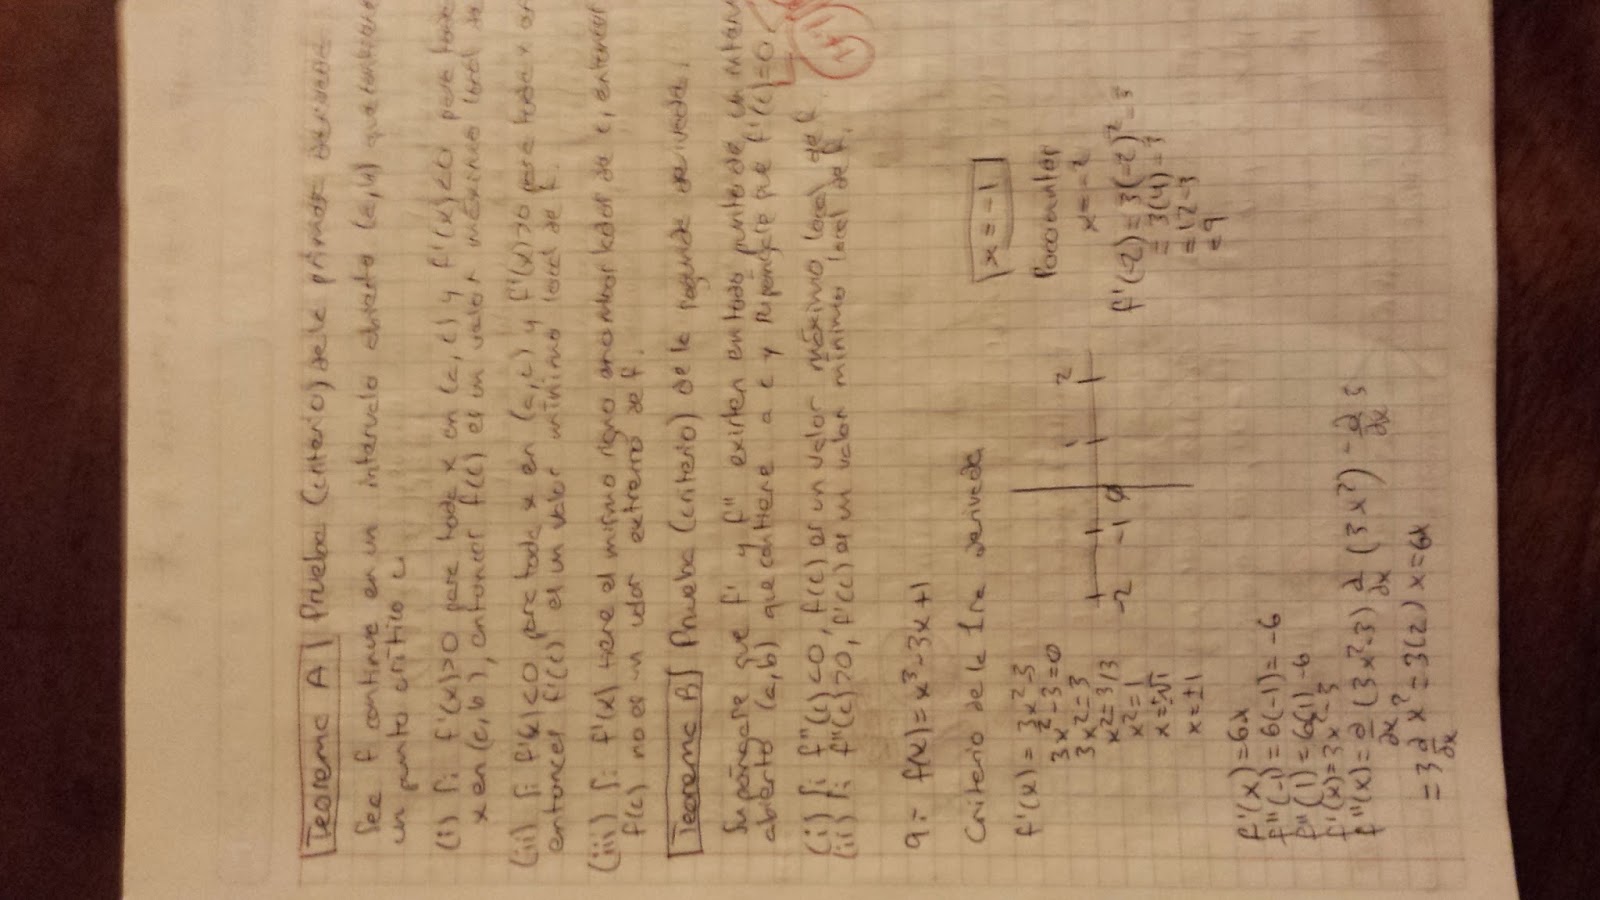 Teorema A Prueba (criterio) de la primera derivada
Sea f continua en un intervalo abierto (a,b) que contiene
un punto crítico c
(i) Si f'(x)>0 para toda x en (a,c) y f'(x)<0 para toda
x en (c,b), entonces f(c) es un valor máximo local de
(ii) Si f'(x)<0 para toda x en (a,c) y f'(x)>0 para toda x en
entonces f(c) es un valor mínimo local de f.
(iii) Si f'(x) tiene el mismo signo en ambos lados de c, entonces
f(c) no es un valor extremo de f.
Teorema B Prueba (criterio) de la segunda derivada.
Supóngase que f' y f'' existen en todo punto de un
abierto (a,b) que contiene a c y supóngase que f'(c)=0
(i) Si f''(c)<0, f(c) es un valor máximo local de f.
(ii) Si f''(c)>0, f'(c) es un valor mínimo local de f.
9.- f(x)=x³-3x+1
Criterio de la 1ra derivada
f'(x)=3x²-3
3x²-3=0
3x²=3
x²=3/3
x²=1
x=±√1
x=±1
-2 -1 0 1 2
x=-1
Para un valor
x=-2
f'(-2)=3(-2)²-3
=3(4)-3
=12-3
=9
f''(x)=6x
f''(-1)=6(-1)=-6
f''(1)=6(1)-6
f'(x)=3x²-3
f''(x)=∂/∂x (3x²-3) ∂/∂x (3x²) - ∂/∂x 3
=3 ∂/∂x x²=3(2)x=6x